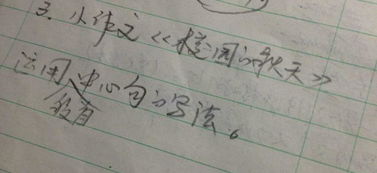 3、小作文《校园的秋天》
运用没有中心句的写法。